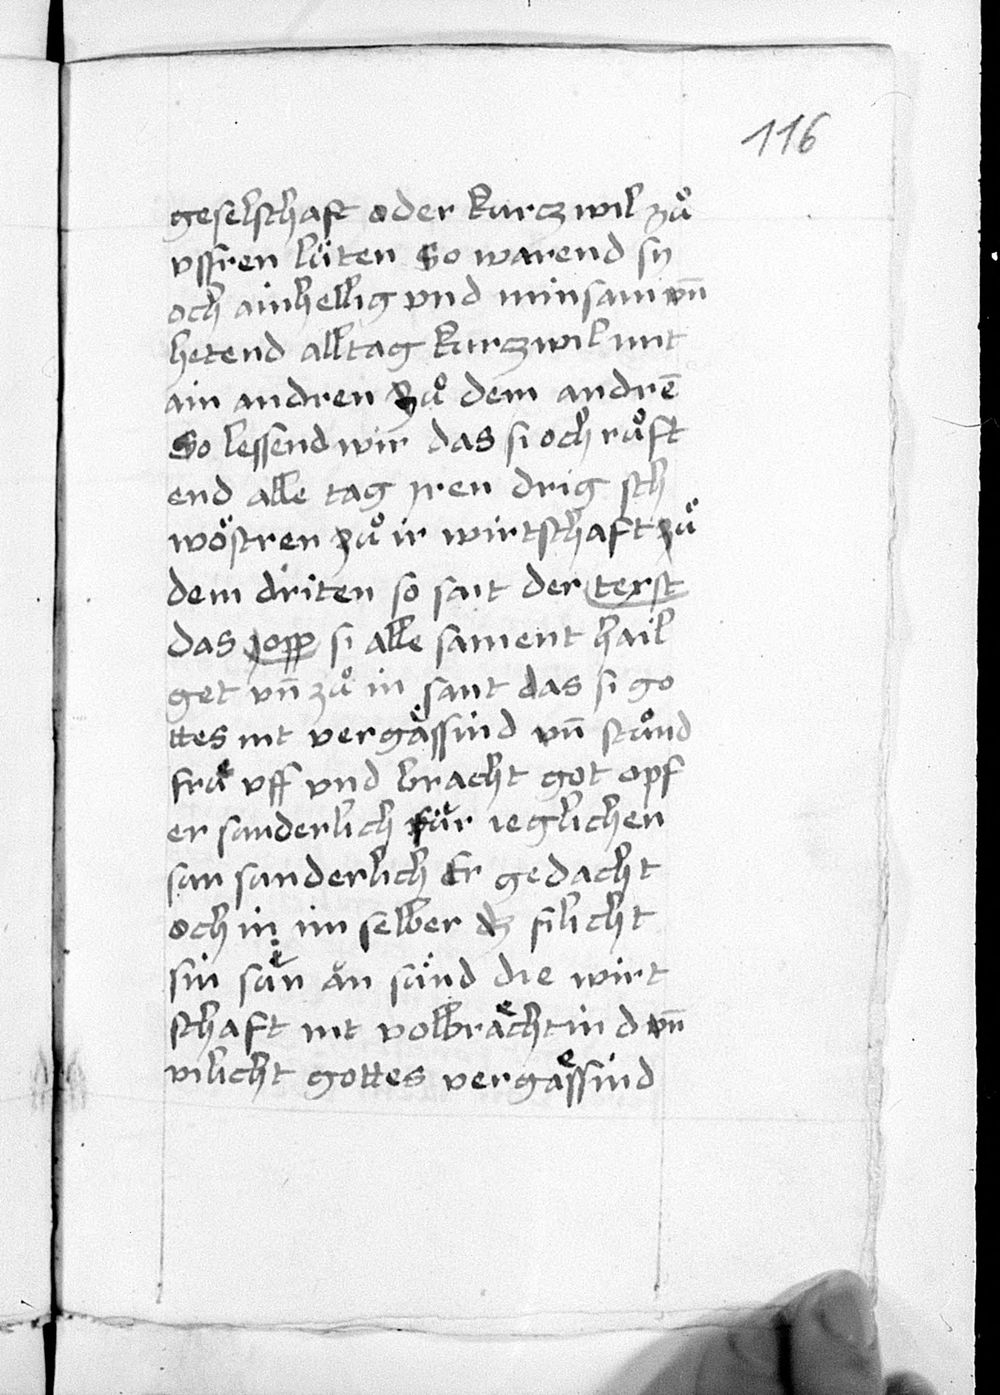 116
geselschaft oder kurczwil zuͦ
vssren lüten So warend sy
och ainhellig vnd minsam vn̄
hetend alltag kurczwil mit
ain andren zuͦ dem andrē
So lessend wir das si och ruͦft
end alle tag iren drig sch
wöstren zuͦ ir wirtschaft zuͦ
dem driten so sait der texst
das jopp si alle sament hail
get vn̄ zuͦ in sant das si go
ttes nit vergaͤssind vn̄ stuͦnd
fruͤ vff vnd bracht got opf
er sunderlich für ieglichen
sun sunderlich Er gedacht
och in im selber dz filicht
sin suͤn an sünd die wirt
schaft nit volbraͤchtind vn̄
vilicht gottes vergaͤssind